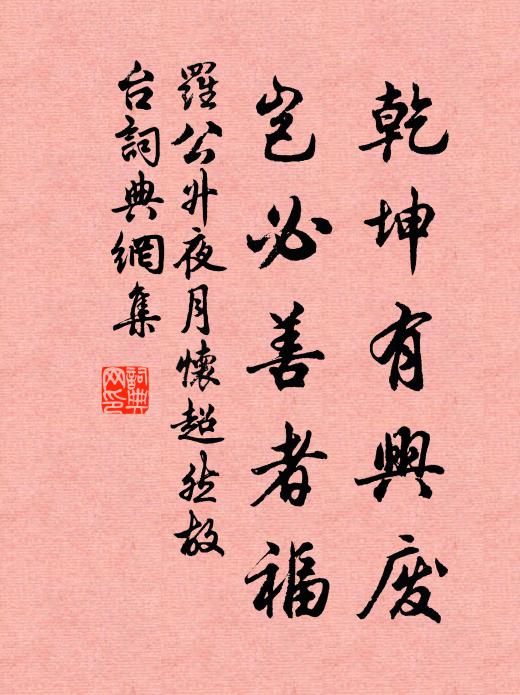 乾坤有興廢
豈必善者福
羅公升夜月懷超然故
台詞典網集
詞典網印